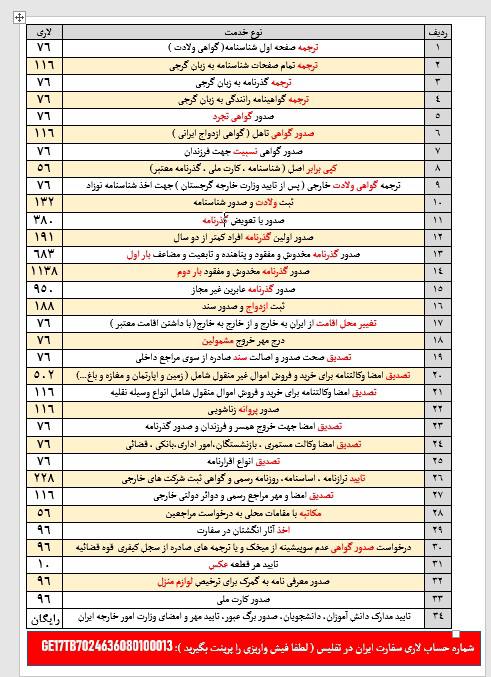 ردیف نوع خدمت لاری
۱ ترجمه صفحه اول شناسنامه( گواهی ولادت ) ۷۶
۲ ترجمه تمام صفحات شناسنامه به زبان گرجی ۱۱۶
۳ ترجمه گذرنامه به زبان گرجی ۷۶
۴ ترجمه گواهینامه رانندگی به زبان گرجی ۷۶
۵ صدور گواهی تجرد ۷۶
۶ صدور گواهی تاهل ( گواهی ازدواج ایرانی ) ۱۱۶
۷ صدور گواهی نسبیت جهت فرزندان ۷۶
۸ کپی برابر اصل ( شناسنامه ، کارت ملی ، گذرنامه معتبر) ۵۶
۹ ترجمه گواهی ولادت خارجی ( پس از تایید وزارت خارجه گرجستان ) جهت اخذ شناسنامه نوزاد ۷۶
۱۰ ثبت ولادت و صدور شناسنامه ۱۳۲
۱۱ صدور یا تعویض گذرنامه ۳۸۰
۱۲ صدور اولین گذرنامه افراد کمتر از دو سال ۱۹۱
۱۳ صدور گذرنامه مخدوش و مفقود و پناهنده و تابعیت و مضاعف بار اول ۶۸۳
۱۴ صدور گذرنامه مخدوش و مفقود بار دوم ۱۱۳۸
۱۵ صدور گذرنامه عابرین غیر مجاز ۹۵۰
۱۶ ثبت ازدواج و صدور سند ۱۸۸
۱۷ تغییر محل اقامت از ایران به خارج و از خارج به خارج( با داشتن اقامت معتبر ) ۷۶
۱۸ درج مهر خروج مشمولین ۷۶
۱۹ تصدیق صحت صدور و اصالت سند صادره از سوی مراجع داخلی ۷۶
۲۰ تصدیق امضا وکالتنامه برای خرید و فروش اموال غیر منقول شامل ( زمین و اپارتمان و مغازه و باغ...) ۵۰۲
۲۱ تصدیق امضا وکالتنامه برای خرید و فروش اموال منقول شامل انواع وسیله نقلیه ۱۱۶
۲۲ صدور پروانه زناشویی ۱۱۶
۲۳ تصدیق امضا جهت خروج همسر و فرزندان و صدور گذرنامه ۷۶
۲۴ تصدیق امضا وکالت مستمری ، بازنشستگان،امور اداری،بانکی ، قضائی ۷۶
۲۵ تصدیق انواع اقرارنامه ۷۶
۲۶ تایید ترازنامه ، اساسنامه، روزنامه رسمی و گواهی ثبت شرکت های خارجی ۲۲۸
۲۷ تصدیق امضا و مهر مراجع رسمی و دوائر دولتی خارجی ۱۱۶
۲۸ مکاتبه با مقامات محلی به درخواست مراجعین ۵۶
۲۹ اخذ آثار انگشتان در سفارت ۹۶
۳۰ درخواست صدور گواهی عدم سوپیشینه از میخک و یا ترجمه های صادره از سجل کیفری قوه قضائیه ۹۶
۳۱ تایید هر قطعه عکس ۱۰
۳۲ صدور معرفی نامه به گمرک برای ترخیص لوازم منزل ۹۶
۳۳ صدور کارت ملی ۹۶
۳۴ تایید مدارک دانش آموزان، دانشجویان، صدور برگ عبور، تایید مهر و امضای وزارت امور خارجه ایران رایگان
شماره حساب لاری سفارت ایران در تفلیس ( لطفا فیش واریزی را پرینت بگیرید ): GE17TB7024636080100013